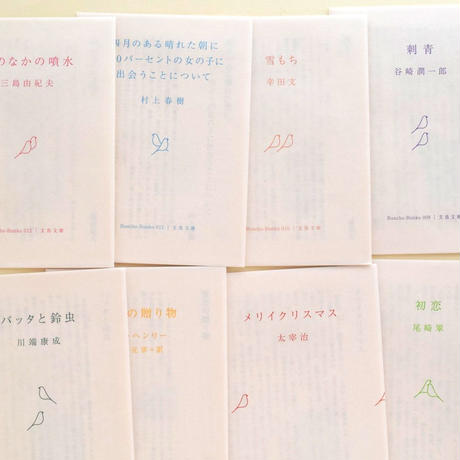 のなかの噴水
三島由紀夫
四月のある晴れた朝に
0パーセントの女の子に
出会うことについて
村上春樹
雪もち
幸田文
刺青
谷崎潤一郎
Buncho-Bunko 012 | 文鳥文庫
Buncho-Bunko 011 | 文鳥文庫
Buncho-Bunko 010 | 文鳥文庫
Buncho-Bunko 009 | 文鳥文庫
バッタと鈴虫
川端康成
の贈り物
・ヘンリー
訳
メリイクリスマス
太宰治
初恋
尾崎翠